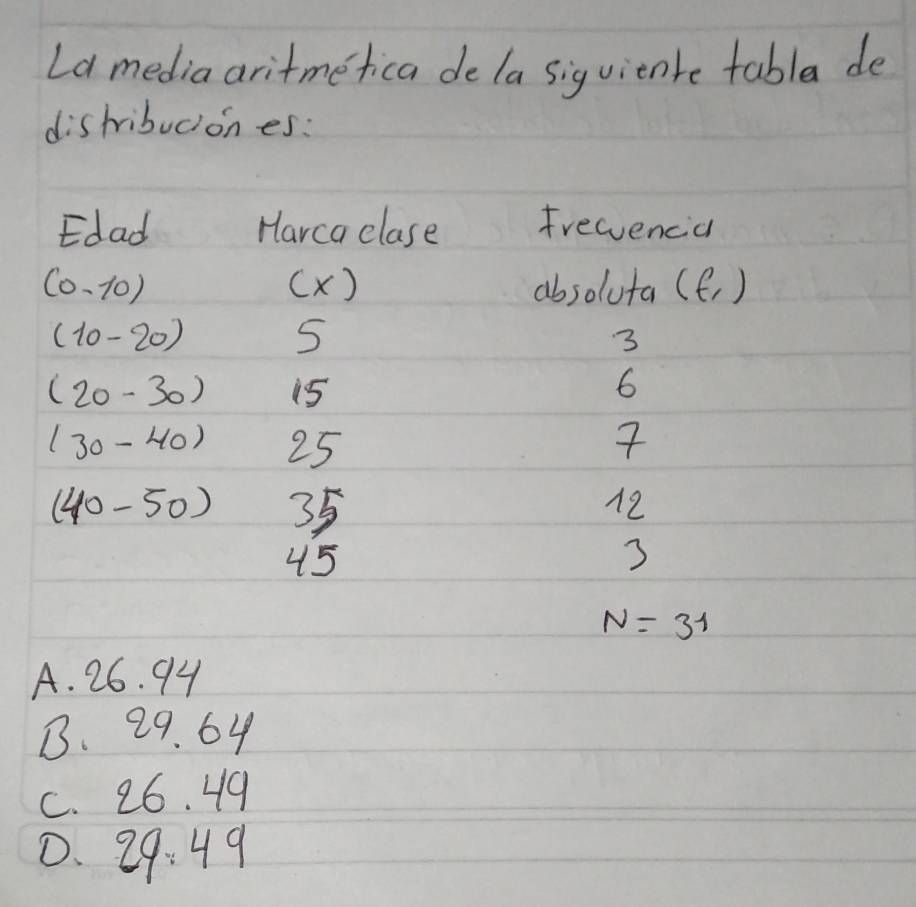 La media aritmética de la siguiente tabla de
distribución es:
Edad Marca clase Frecuencia
(0-10) (x) absoluta (f,)
(10-20) 5 3
(20-30) 15 6
(30-40) 25 7
(40-50) 35 12
45 3
N = 31
A. 26.94
B. 29.64
C. 26.49
D. 29.49